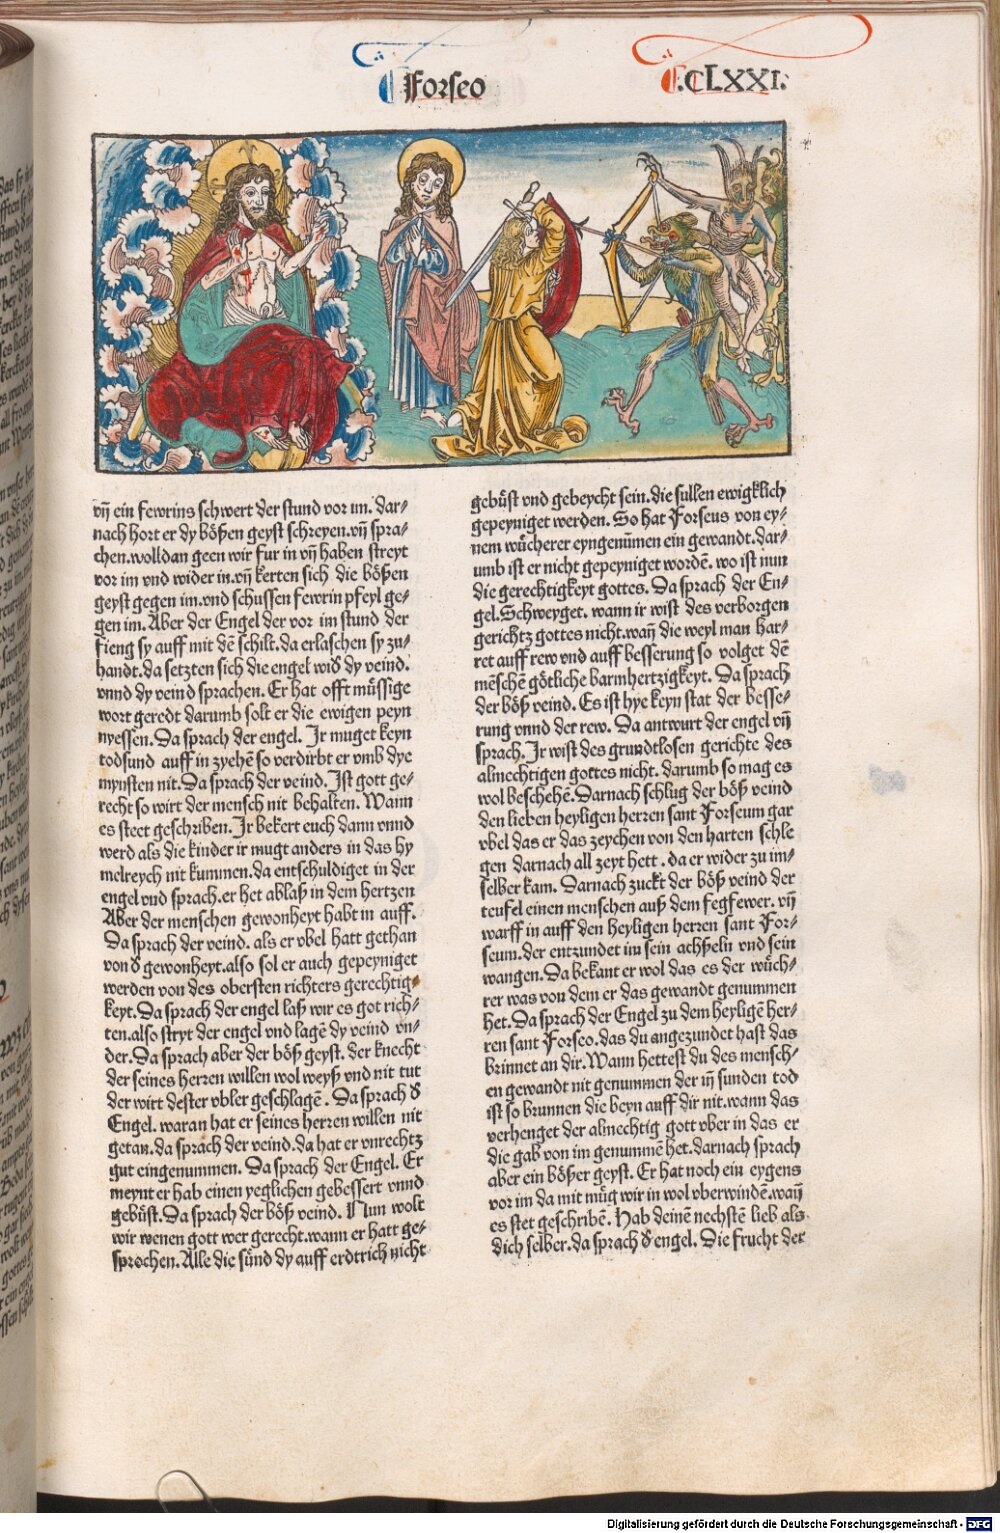 Forseo
.CLXXI.
vñ ein fewrins schwert der stund vor im. dar⸗
nach hort er dy bößen geyst schreyen.vñ spra⸗
chen.wolldan geen wir fur in vñ haben streyt
vor im vnd wider in.vñ kerten sich die bößen
geyst gegen im.vnd schussen fewrin pfeyl ge⸗
gen im. Aber der Engel der vor im stund der
fieng sy auff mit dē schilt.da erlaschen sy zu⸗
handt.da setzten sich die engel wid dy veind.
vnnd dy veind sprachen. Er hat offt müssige
wort geredt darumb solt er die ewigen peyn
nyessen. Da sprach der engel. Ir muget keyn
todsund auff in zyehē so verdirbt er vmb dye
mynsten nit. Da sprach der veind. Ist gott ge⸗
recht so wirt der mensch nit behalten. Wann
es steet geschriben. Ir bekert euch dann vnnd
werd als die kinder ir mugt anders in das hy
melreych nit kummen.da entschuldiget in der
engel vnd sprach.er het ablaß in dem hertzen
Aber der menschen gewonheyt habt in auff.
Da sprach der veind. als er vbel hatt gethan
von d gewonheyt.also sol er auch gepeyniget
werden von des obersten richters gerechtig⸗
keyt. Da sprach der engel laß wir es got rich⸗
ten.also stryt der engel vnd lagē dy veind vn⸗
der. Da sprach aber der böß geyst. der knecht
der seines herren willen wol weyß vnd nit tut
der wirt dester vbler geschlagē. Da sprach d
Engel. waran hat er seines herren willen nit
getan.da sprach der veind.da hat er vnrechtz
gut eingenummen. Da sprach der Engel. Er
meynt er hab einen yeglichen gebessert vnnd
gebüst. Da sprach der böß veind. Nun wolt
wir wenen gott wer gerecht.wann er hatt ge⸗
sprochen. Alle die sünd dy auff erdtrich nicht
gebüst vnd gebeycht sein.die sullen ewigklich
gepeyniget werden. So hat Forseus von ey⸗
nem wücherer eyngenūmen ein gewandt.dar⸗
umb ist er nicht gepeyniget wordē. wo ist nun
die gerechtigkeyt gottes. Da sprach der En⸗
gel. Schweyget. wann ir wist des verborgen
gerichtz gottes nicht.wañ die weyl man har⸗
ret auff rew vnd auff besserung so volget dē
mēschē götliche barmhertzigkeyt. Da sprach
der böß veind. Es ist hye keyn stat der besse⸗
rung vnnd der rew. Da antwurt der engel vñ
sprach. Ir wist des grundtlosen gerichte des
almechtigen gottes nicht. darumb so mag es
wol beschehē. Darnach schlug der böß veind
den lieben heyligen herren sant Forseum gar
vbel das er das zeychen von den harten schle
gen darnach all zeyt hett . da er wider zu im⸗
selber kam. Darnach zuckt der böß veind der
teufel einen menschen auß dem fegfewer. vñ
warff in auff den heyligen herren sant For⸗
seum.der entzundet im sein achßeln vnd sein
wangen. Da bekant er wol das es der wüch⸗
rer was von dem er das gewandt genummen
het. Da sprach der Engel zu dem heyligē her⸗
ren sant Forseo.das du angezundet hast das
brinnet an dir. Wann hettest du des mensch⸗
en gewandt nit genummen der in sunden tod
ist so brunnen die beyn auff dir nit.wann das
verhenget der almechtig gott vber in das er
die gab von im genummē het.darnach sprach
aber ein bößer geyst. Er hat noch ein eygens
vor im da mit müg wir in wol vberwindē.wañ
es stet geschribē. Hab deinē nechstē lieb als
dich selber.da sprach d engel. Die frucht der
Digitalisierung gefördert durch die Deutsche Forschungsgemeinschaft - DFG